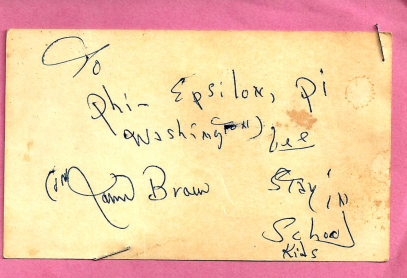 To
Phi - Epsilon, Pi
(Washington) Lee
James Brown Stay in
School
Kids